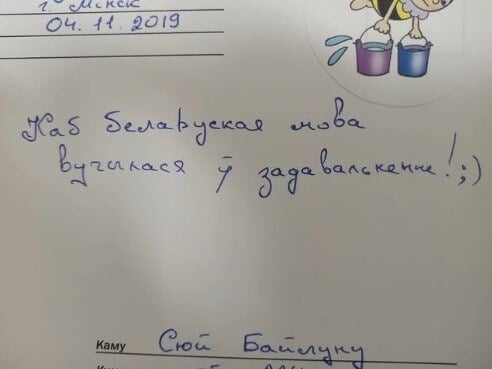 г. Мінск
04.11.2019
Каб беларуская мова
вучылася ў задавальненне! ;)
Каму Сюй Байлуну